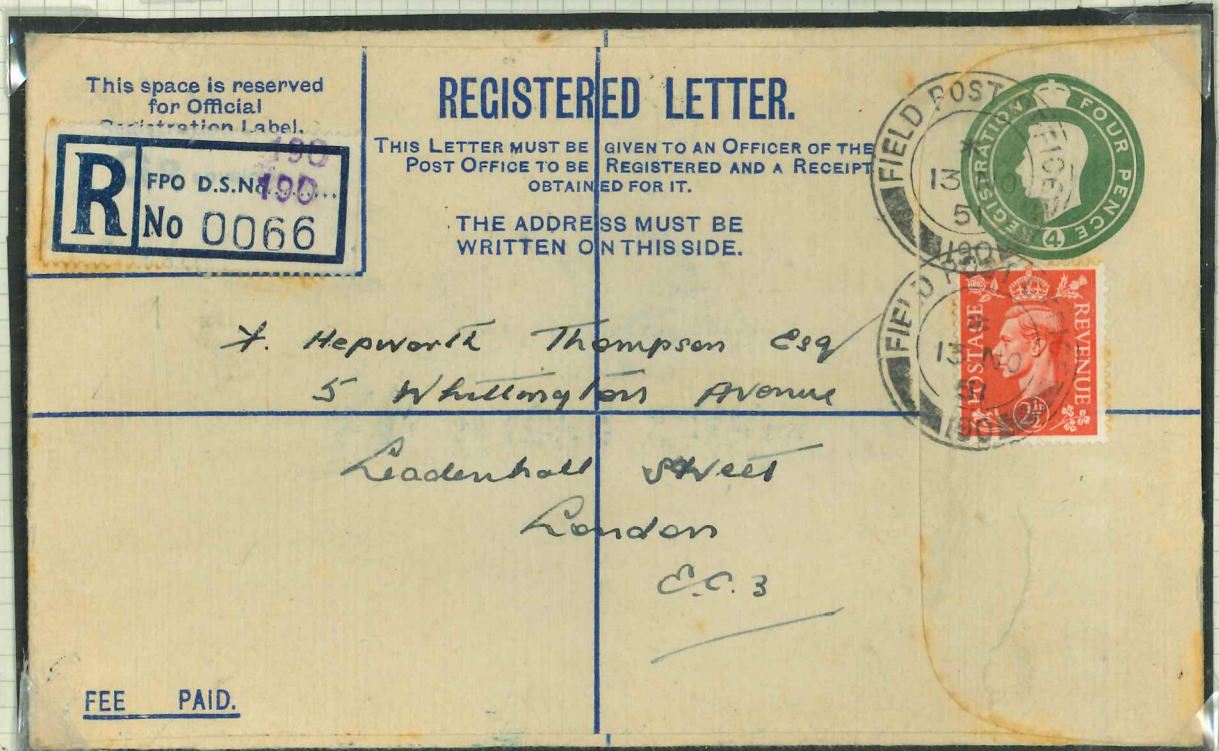 This space is reserved
for Official
Registration Label.
R
FPO D.S.No........
190
190
No 0066
REGISTERED LETTER.
THIS LETTER MUST BE GIVEN TO AN OFFICER OF THE
POST OFFICE TO BE REGISTERED AND A RECEIPT
OBTAINED FOR IT.
THE ADDRESS MUST BE
WRITTEN ON THIS SIDE.
REGISTRATION FOUR PENCE
(4)
FIELD POST OFFICE
13 NO
51
190
POSTAGE REVENUE
2½D
FIELD POST OFFICE
13 NO
51
190
Hepworth Thompson Esq
5 Whittington Avenue
Leadenhall Street
London
E.C.3
FEE PAID.